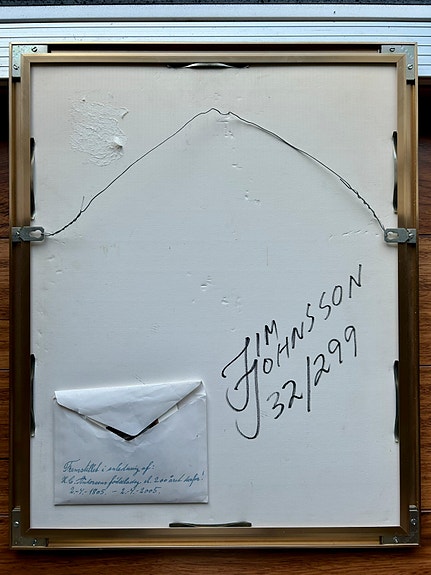 JIM
JOHNSSON
32/299
Fremstillet i anledning af:
H.C. Andersens fødselsdag 200 året
2-4-1805. – 2-4-2005.